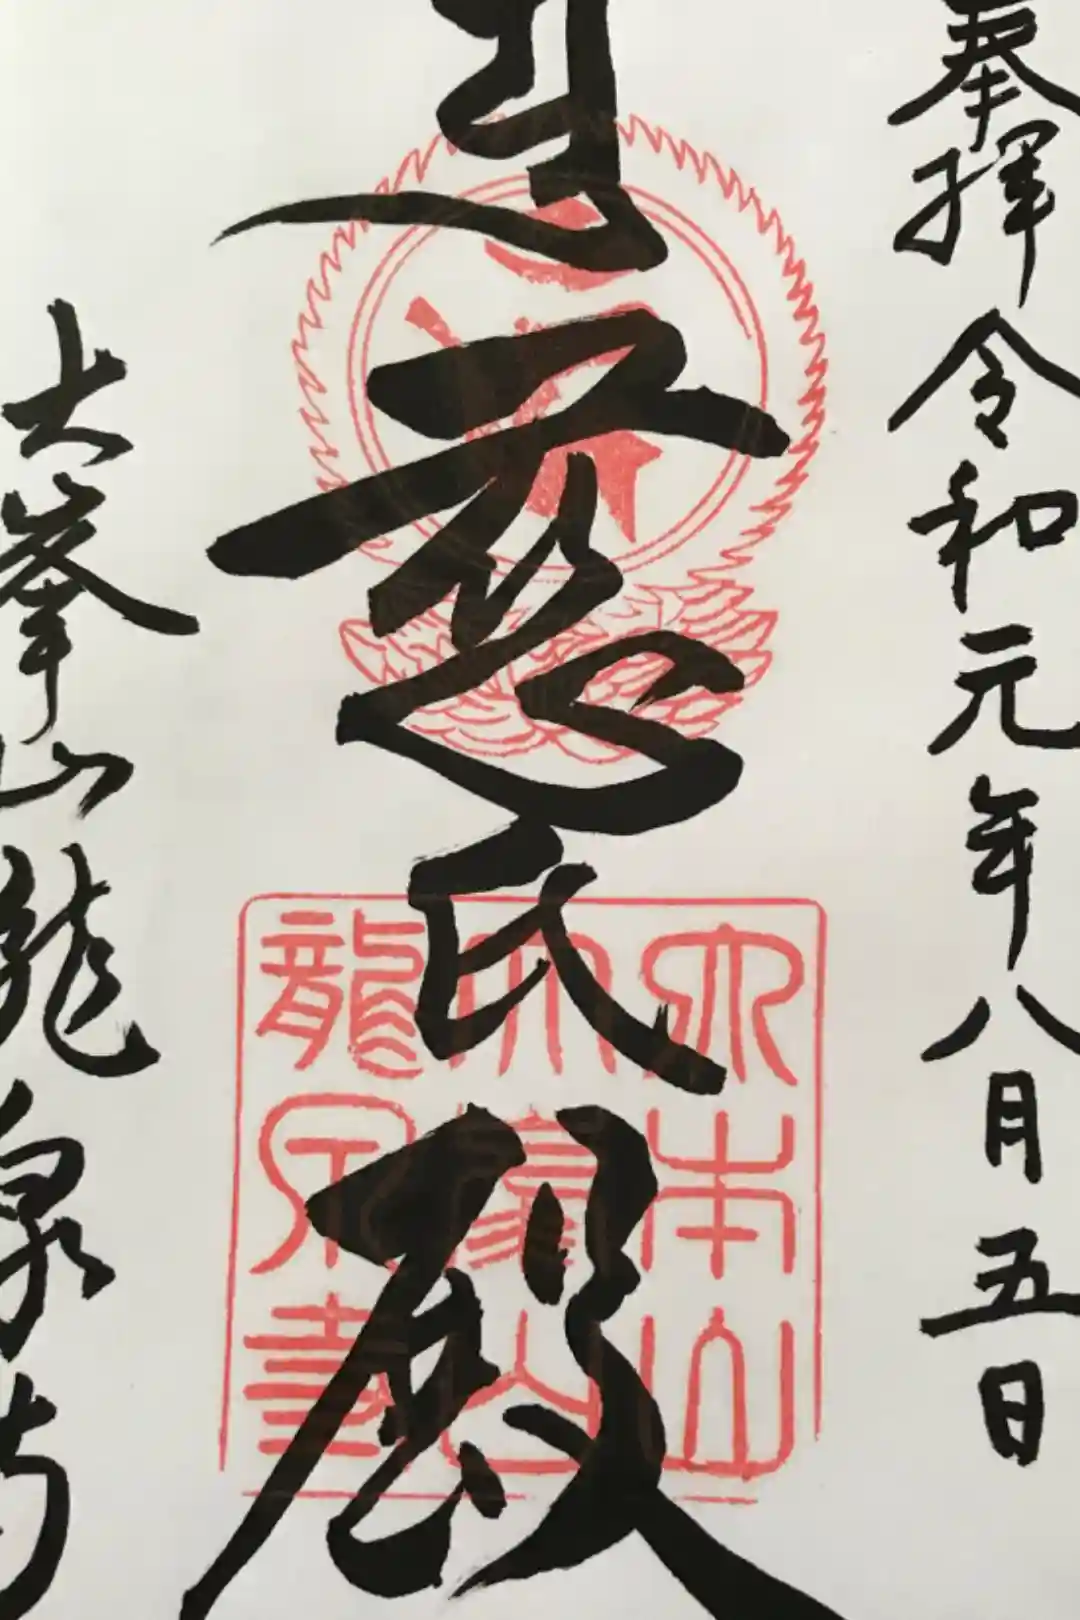 奉拝 令和元年八月五日
慈氏殿
大峯山龍泉寺
大本山
大峯山
龍泉寺